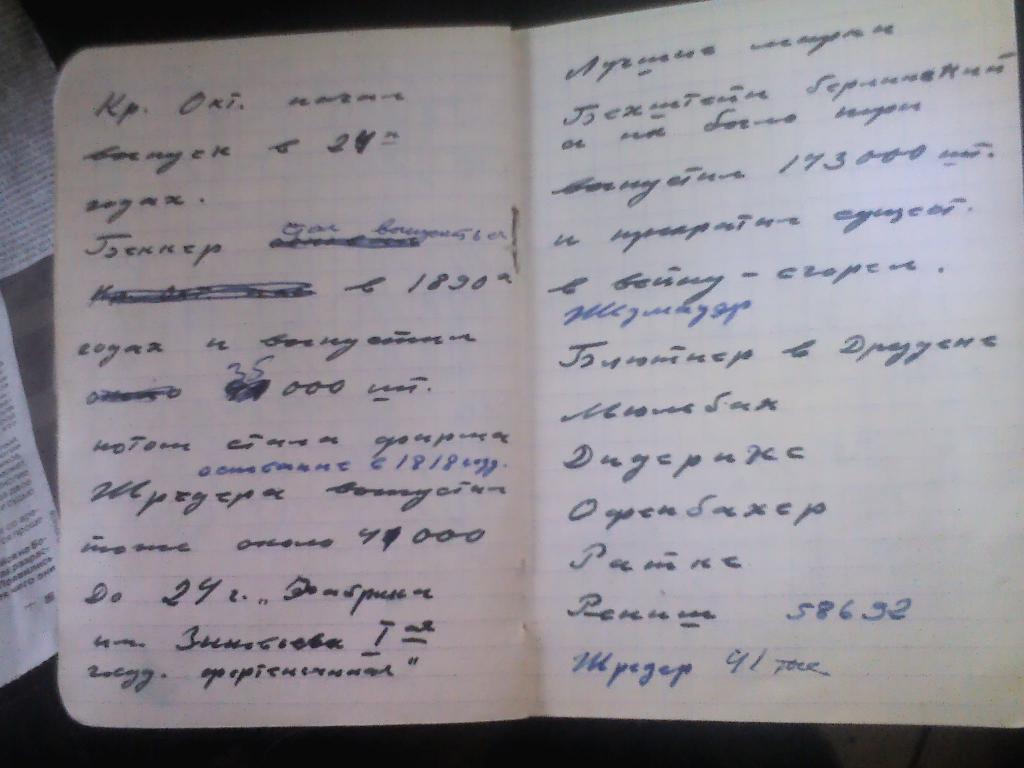 Кр. Окт. начал
выпуск в 24х
годах.
Беккер стал выпускаться
в 1890х
годах и выпустил
35 000 шт.
потом стала фирма
основание с 1818 году.
Шредера выпустил
тоже около 41 000
До 24 г. „Фабрика
им. Зиновьева I ая
госуд. фортепианная"
Лучшие марки
Бехштейн берлинский
выпустил 173 000 шт.
и прекратил сущест.
в войну - сгорел.
Шидмауэр
Блютнер в Дрездене
Мюльбах
Дидерихс
Офенбахер
Ратке
Рениш 58692
Шредер 41 тыс